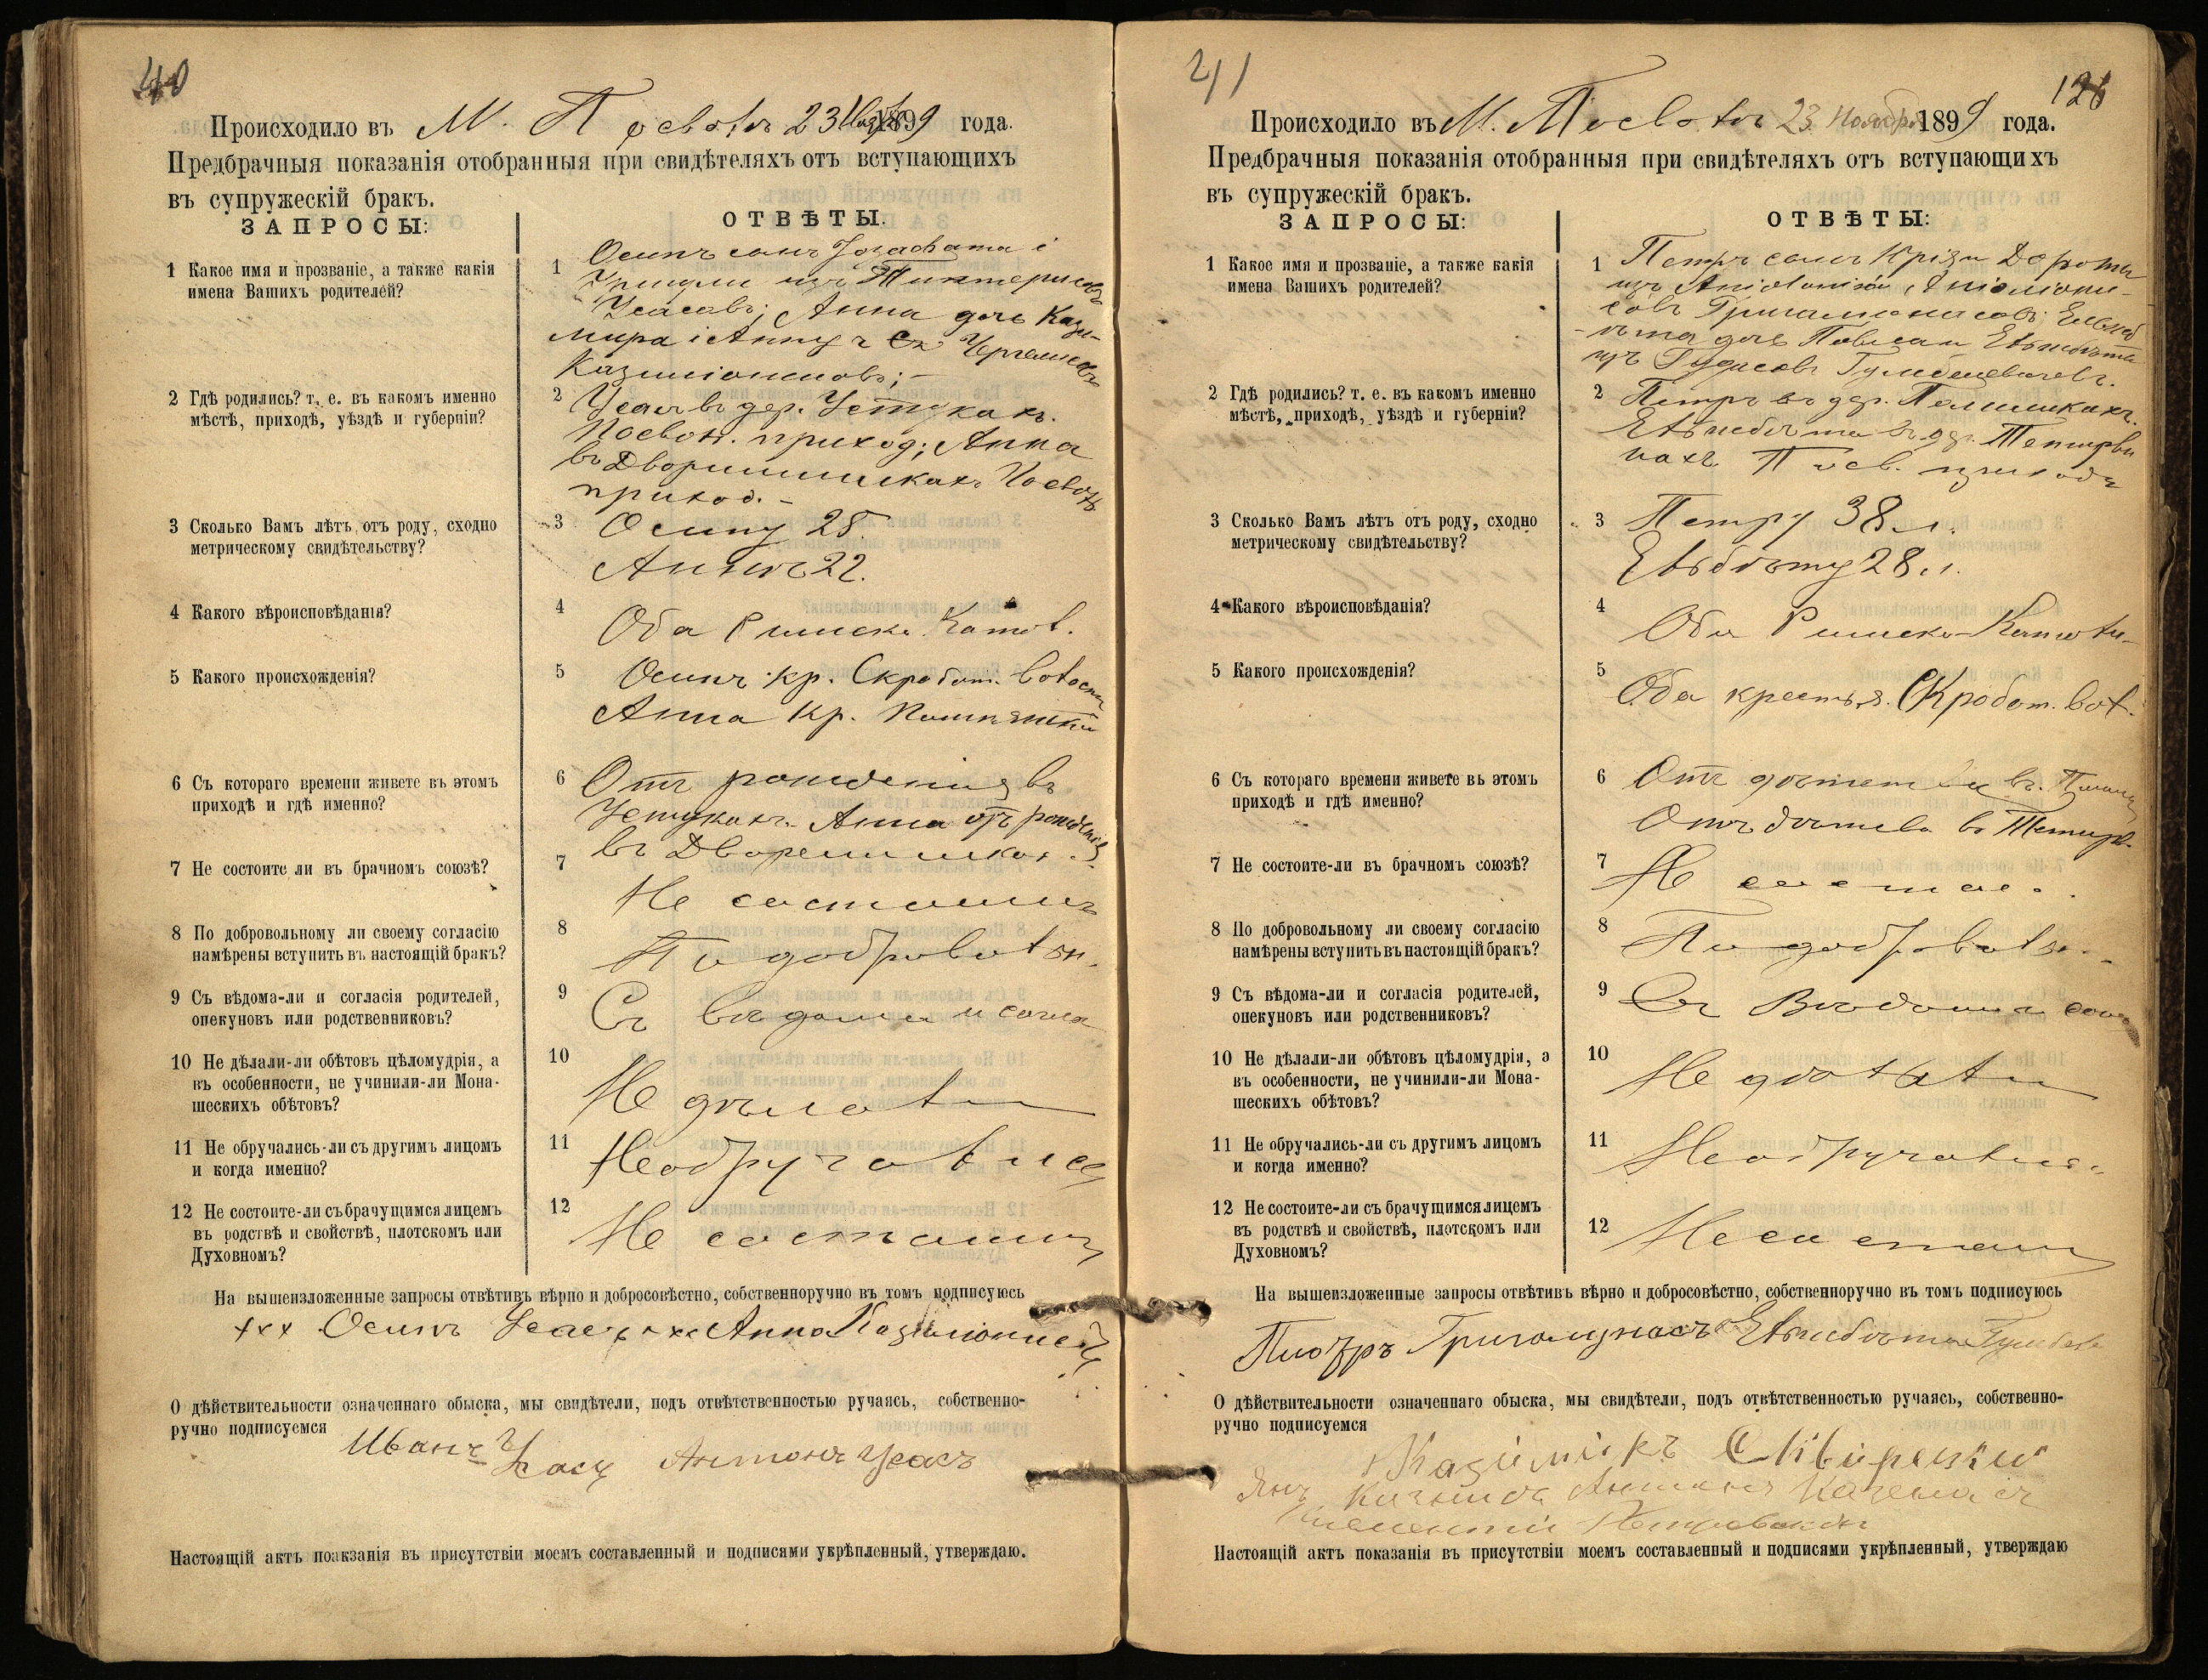 40
Происходило въ М. Посволь 23 1899 года.
Предбрачныя показанія отобранныя при свидѣтеляхъ отъ вступающихъ
въ супружескій бракъ.
ЗАПРОСЫ:
ОТВѢТЫ.
1 Какое имя и прозваніе, а также какія
имена Вашихъ родителей?
1 Осипъ сынъ і
изъ
Усасовъ; Анна дочь Кази-
мира і Анны
2 Гдѣ родились? т. е. въ какомъ именно
мѣстѣ, приходѣ, уѣздѣ и губерніи?
2 Усасъ въ дер. Устукахъ.
Посвол. приход; Анна
въ Дворишшкахъ Посвол
приход. -
3 Сколько Вамъ лѣтъ отъ роду, сходно
метрическому свидѣтельству?
3 Осипу 25.
Аннѣ 22.
4 Какого вѣроисповѣданія?
4 Оба Римско. Катол.
5 Какого происхожденія?
5 Осипъ кр. Скробот. волости
Анна кр.
6 Съ котораго времени живете въ этомъ
приходѣ и гдѣ именно?
6 Отъ рожденія въ
Устукахъ. Анна отъ рожденія
въ
7 Не состоите ли въ брачномъ союзѣ?
7 Не состоимъ
8 По добровольному ли своему согласію
намѣрены вступить въ настоящій бракъ?
8 По добровольн.
9 Съ вѣдома-ли и согласія родителей,
опекуновъ или родственниковъ?
9 Съ вѣдома и согла
10 Не дѣлали-ли обѣтовъ цѣломудрія, а
въ особенности, не учинили-ли Мона-
шескихъ обѣтовъ?
10 Не дѣлали
11 Не обручались-ли съ другимъ лицомъ
и когда именно?
11 Необручались
12 Не состоите-ли съ брачущимся лицемъ
въ родствѣ и свойствѣ, плотскомъ или
Духовномъ?
12 Не состоимъ
На вышеизложенные запросы отвѣтивъ вѣрно и добросовѣстно, собственноручно въ томъ подписуюсь
+++ Осипъ Усасъ +++ Анна
О дѣйствительности означеннаго обыска, мы свидѣтели, подъ отвѣтственностью ручаясь, собственно-
ручно подписуемся
Иванъ Усасъ Антонъ Усасъ
Настоящій актъ поакзанія въ присутствіи моемъ составленный и подписями укрѣпленный, утверждаю.
41
126
Происходило въ М. Посволь 23 Ноября 1899 года.
Предбрачныя показанія отобранныя при свидѣтеляхъ отъ вступающихъ
въ супружескій бракъ.
ЗАПРОСЫ:
ОТВѢТЫ:
1 Какое имя и прозваніе, а также какія
имена Вашихъ родителей?
1 Петръ сынъ Дороты
изъ
дочь
изъ
2 Гдѣ родились? т. е. въ какомъ именно
мѣстѣ, приходѣ, уѣздѣ и губерніи?
2 Петръ въ дер.
въ дер.
Посв. прихода
3 Сколько Вамъ лѣтъ отъ роду, сходно
метрическому свидѣтельству?
3 Петру 38 л.
28 л.
4 Какого вѣроисповѣданія?
4 Оба Римско-Католи-
5 Какого происхожденія?
5 Оба крестья. Скробот. вол.
6 Съ котораго времени живете въ этомъ
приходѣ и гдѣ именно?
6 Отъ въ
Отъ въ
7 Не состоите-ли въ брачномъ союзѣ?
7 Не состоя.
8 По добровольному ли своему согласію
намѣрены вступить въ настоящій бракъ?
8 По добровольн.
9 Съ вѣдома-ли и согласія родителей,
опекуновъ или родственниковъ?
9 Съ Вѣдома
10 Не дѣлали-ли обѣтовъ цѣломудрія, а
въ особенности, не учинили-ли Мона-
шескихъ обѣтовъ?
10 Не дѣлали
11 Не обручались-ли съ другимъ лицомъ
и когда именно?
11 Необручались
12 Не состоите-ли съ брачущимся лицемъ
въ родствѣ и свойствѣ, плотскомъ или
Духовномъ?
12 Не состоим
На вышеизложенные запросы отвѣтивъ вѣрно и добросовѣстно, собственноручно въ томъ подписуюсь
Піотръ Григалунасъ
О дѣйствительности означеннаго обыска, мы свидѣтели, подъ отвѣтственностью ручаясь, собственно-
ручно подписуемся
Казіміръ
Янъ Антонъ
Настоящій актъ показанія въ присутствіи моемъ составленный и подписями укрѣпленный, утверждаю